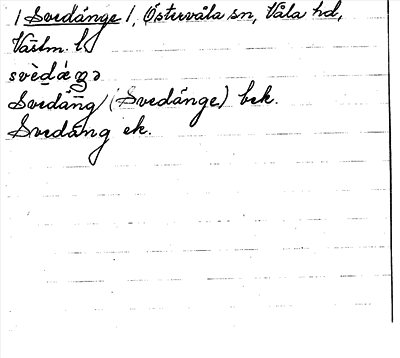 / Svedänge /, Östervåla sn, Våla hd,
Västm. l.
svèdä́ŋə
Svedäng (Svedänge) bek.
Svedäng ek.